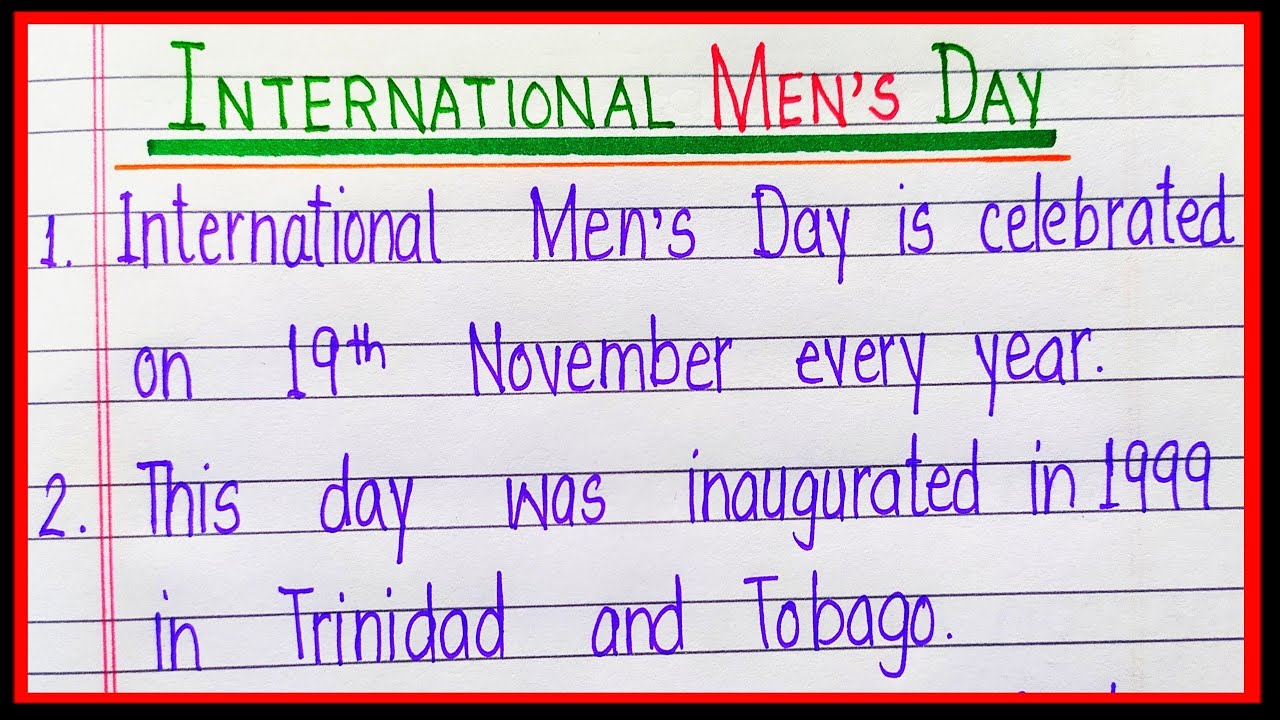 INTERNATIONAL MEN'S DAY
1. International Men's Day is celebrated
on 19th November every year.
2. This day was inaugurated in 1999
in Trinidad and Tobago.